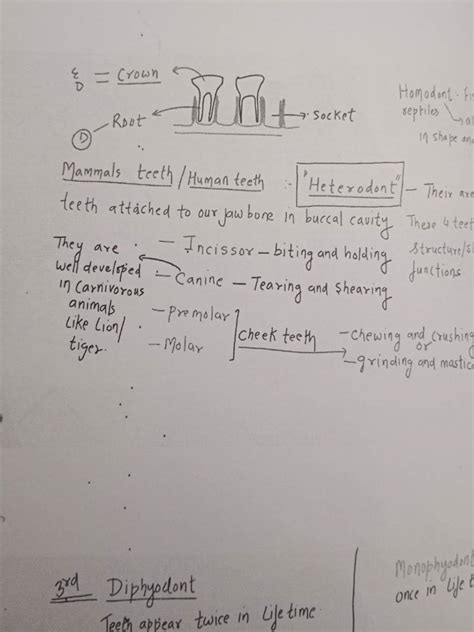 E
D = Crown
D Root
socket
Homodont -
reptiles
in shape
Mammals teeth / Human teeth :- "Heterodont" - Their are
teeth attached to our jaw bone in buccal cavity
These 4 teet
structure/
functions
They are
well developed
in Carnivorous
animals
like Lion/
tiger.
- Incissor - biting and holding
- Canine - Tearing and shearing
- Premolar
- Molar
Cheek teeth
- chewing and crushing
or
- grinding and mastic
3rd Diphyodont
Teeth appear twice in Life time.
Monophyodont
once in life t